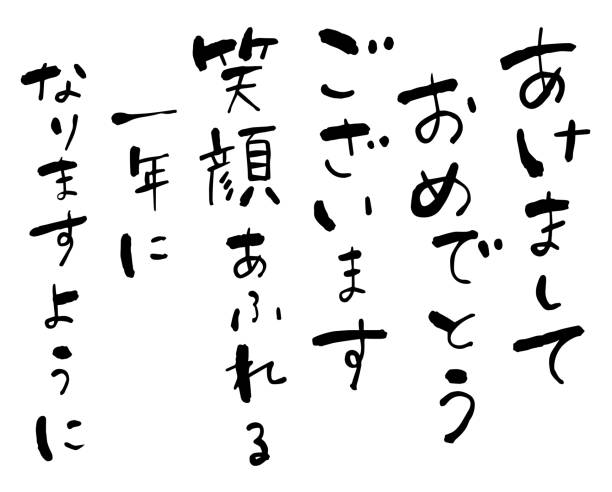 あけまして
おめでとう
ございます
笑顔あふれる
一年に
なりますように